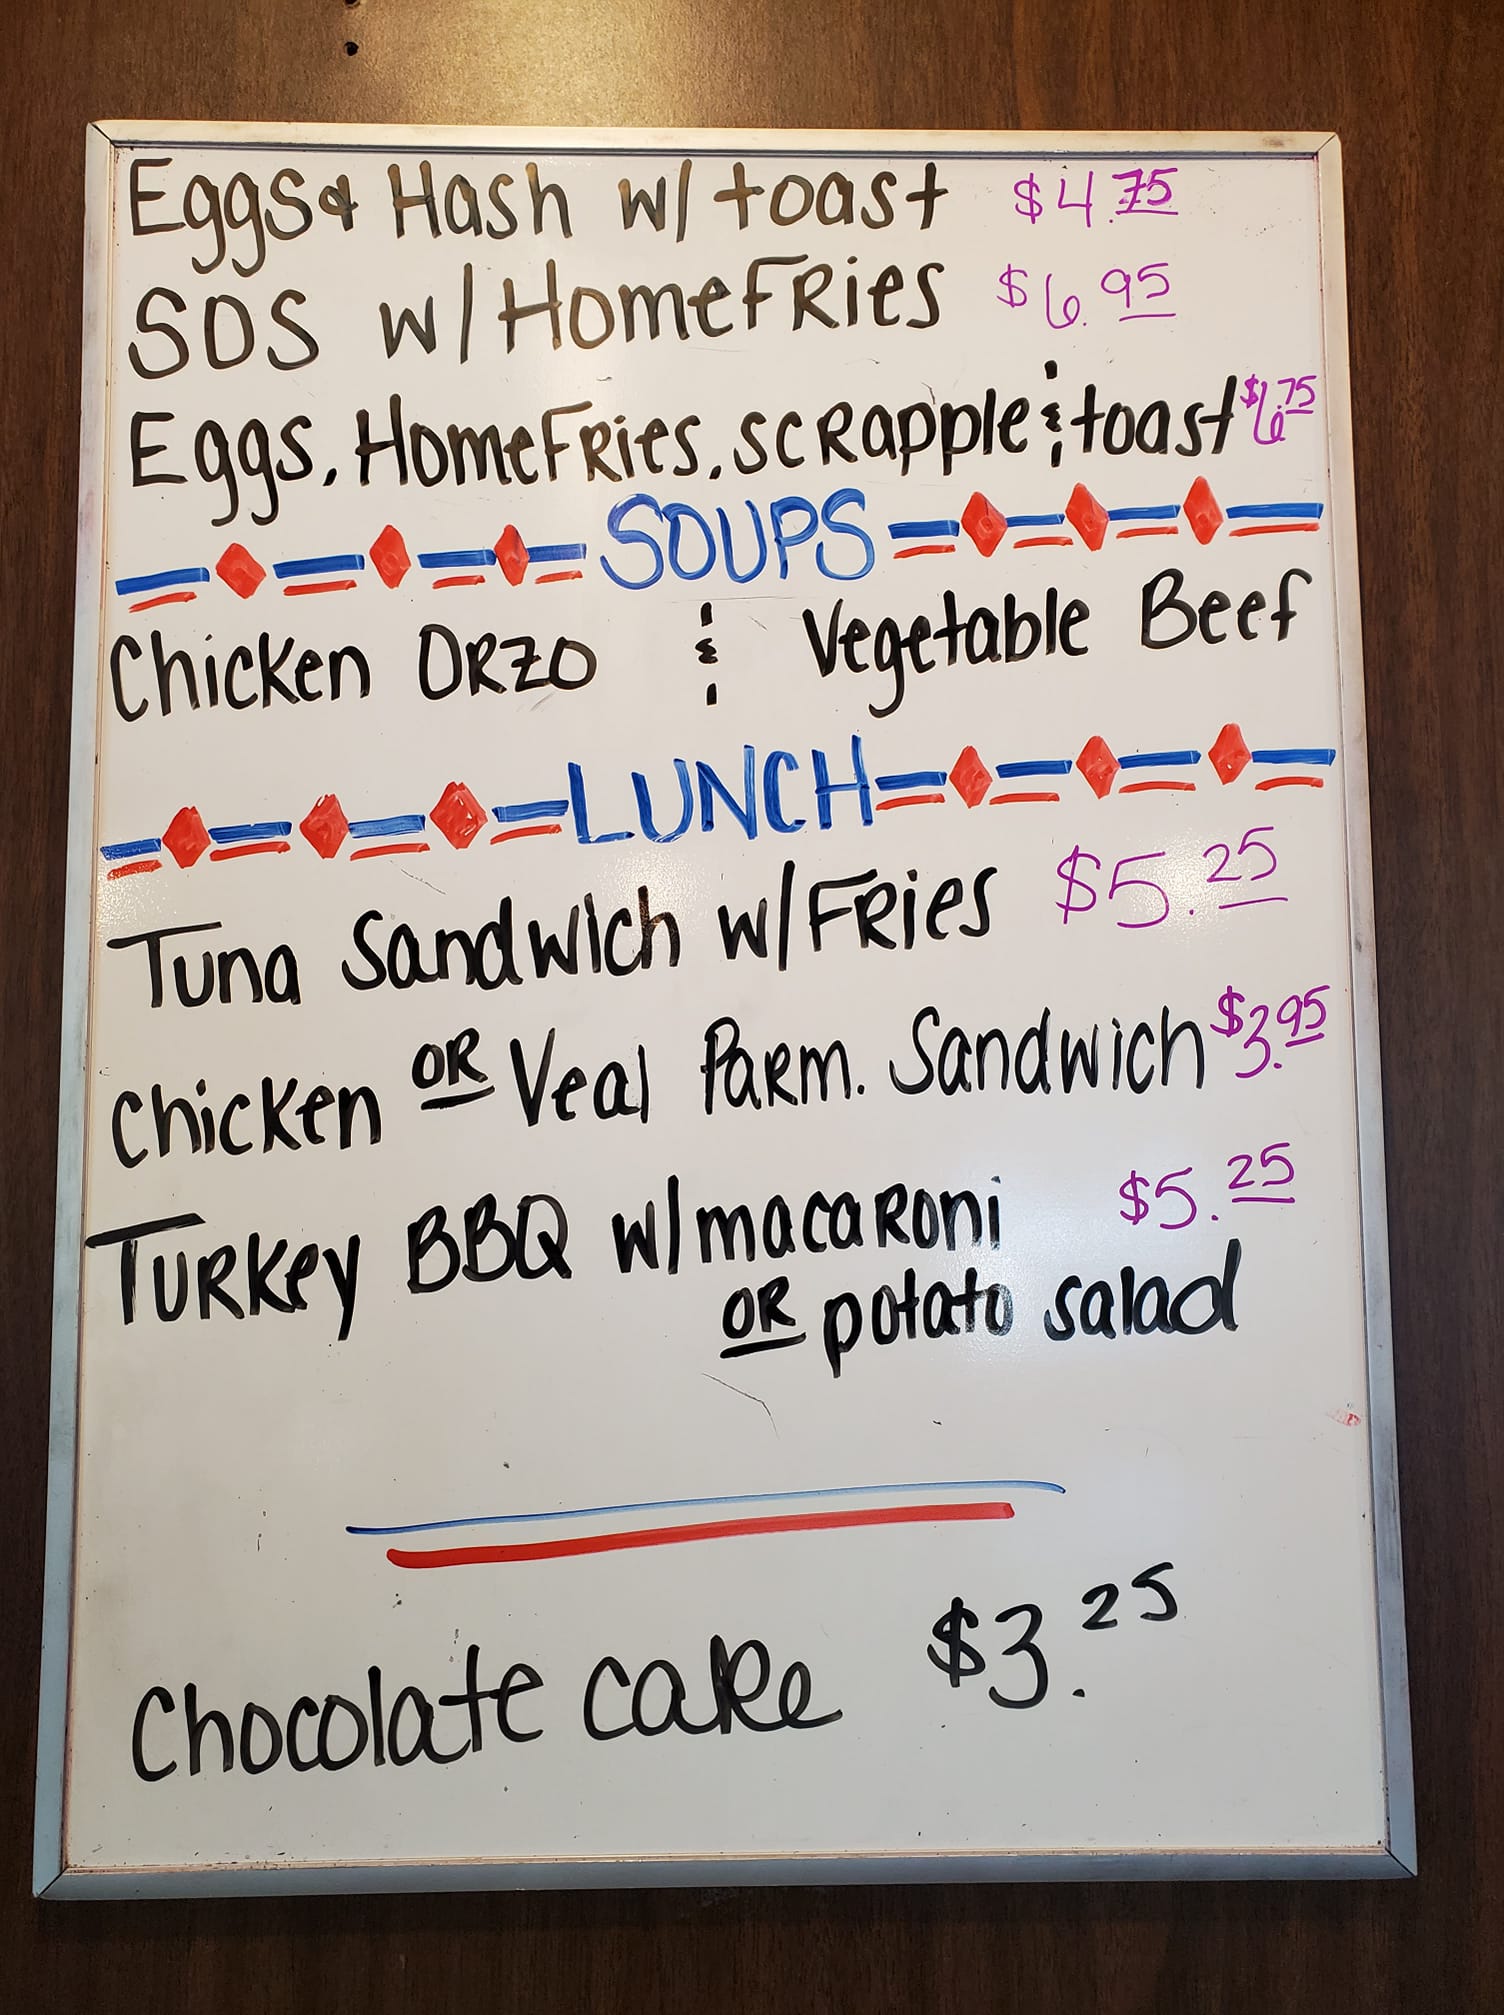 Eggs & Hash w/ toast $4.75
SOS w/ HomeFRies $6.95
Eggs, HomeFRies, scRapple & toast $6.75
SOUPS
Chicken ORZO & Vegetable Beef
LUNCH
Tuna Sandwich w/ FRies $5.25
Chicken OR Veal PaRm. Sandwich $3.95
TuRKey BBQ w/ macaRoni $5.25
OR potato salad
Chocolate cake $3.25